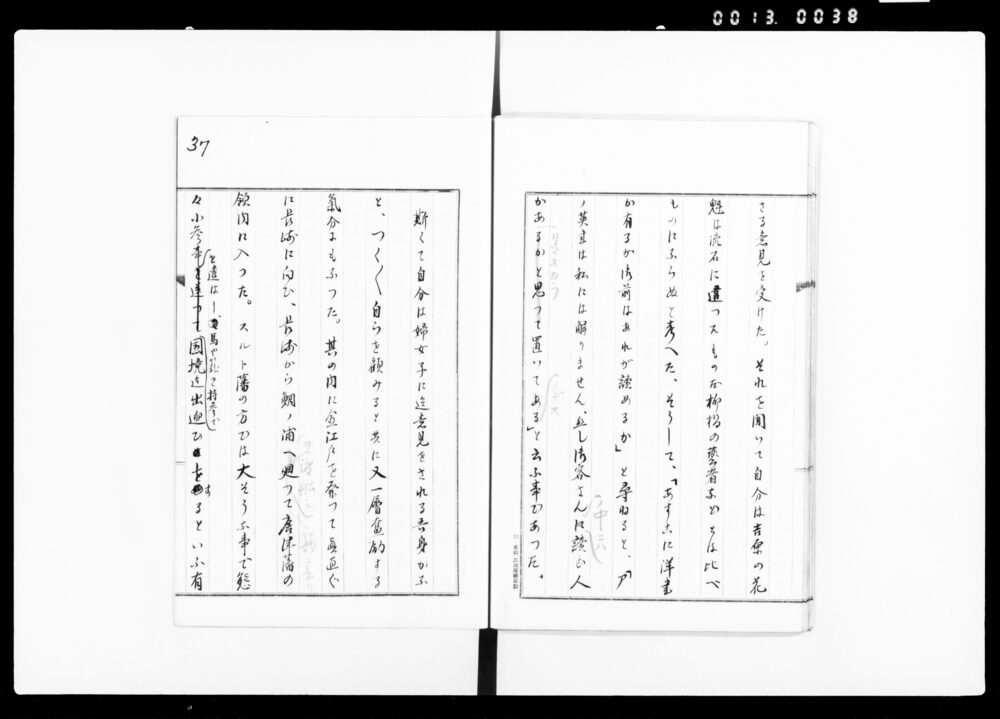 0013.0038
さる意見を受けた。それを聞いて自分は吉原の花
魁は流石に違つたもの 柳橋の藝者などとは比べ
ものにならぬと考へた、そうして、「あすこに洋書
か有るか御前はあれが讀めるか」と尋ねると、「ア
ノ英書は私には解りません、然し御客さんに讀む人
があるかと思つて置いてある」と云ふ事であつた。
37
斯くて自分は婦女子に迄意見をされる吾身かな
と、つく〲自らを顧みると共に又一層奮励する
氣分にもなつた。其の内に 江戸を奈つて眞直ぐ
に長崎に向ひ、長崎から鯛ノ浦へ廻つて唐津藩の
領内に入つた。スルト藩の方では大そうな事で態
々小参事を遣はし、馬や籠を持参で
國境迄出迎ひをするといふ有